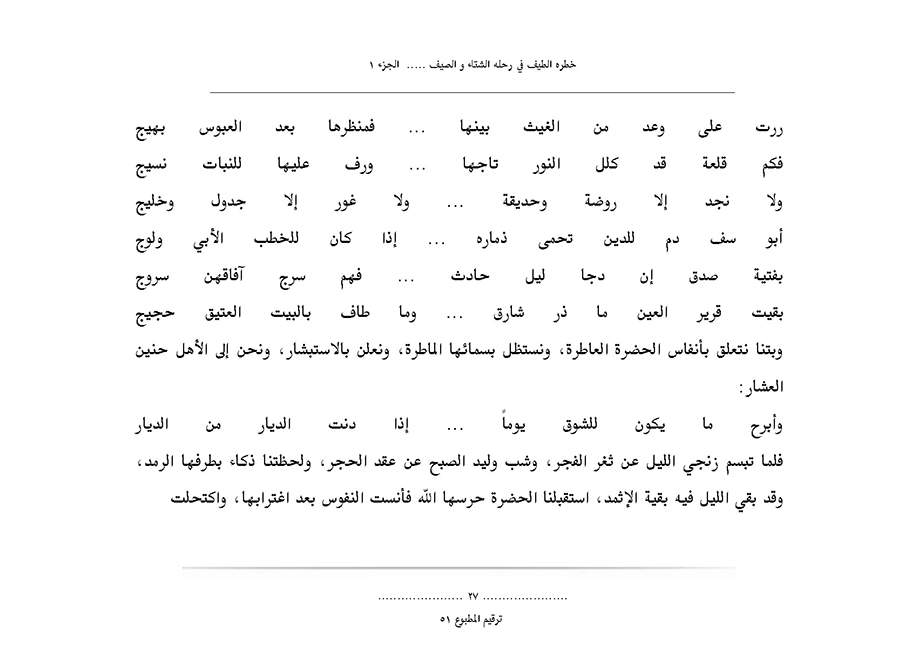 خطره الطيف في رحله الشتاء و الصيف ..... الجزء ١
ررت على وعد من الغيث بينها ... فمنظرها بعد العبوس بهيج
فكم قلعة قد كلل النور تاجها ... ورف عليها للنبات نسيج
ولا نجد إلا روضة وحديقة ... ولا غور إلا جدول وخليج
أبو سف دم للدين تحمى ذماره ... إذا كان للخطب الأبي ولوج
بفتية صدق إن دجا ليل حادث ... فهم سرج آفاقهن سروج
بقيت قرير العين ما ذر شارق ... وما طاف بالبيت العتيق حجيج
وبتنا نتعلق بأنفاس الحضرة العاطرة، ونستظل بسمائها الماطرة، ونعلن بالاستبشار، ونحن إلى الأهل حنين
العشار:
وأبرح ما يكون للشوق يوماً ... إذا دنت الديار من الديار
فلما تبسم زنجي الليل عن ثغر الفجر، وشب وليد الصبح عن عقد الحجر، ولحظتنا ذكاء بطرفها الرمد،
وقد بقي الليل فيه بقية الإثمد، استقبلنا الحضرة حرسها الله فأنست النفوس بعد اغترابها، واكتحلت
...................... ٢٧ ......................
ترقيم المطبوع ٥١